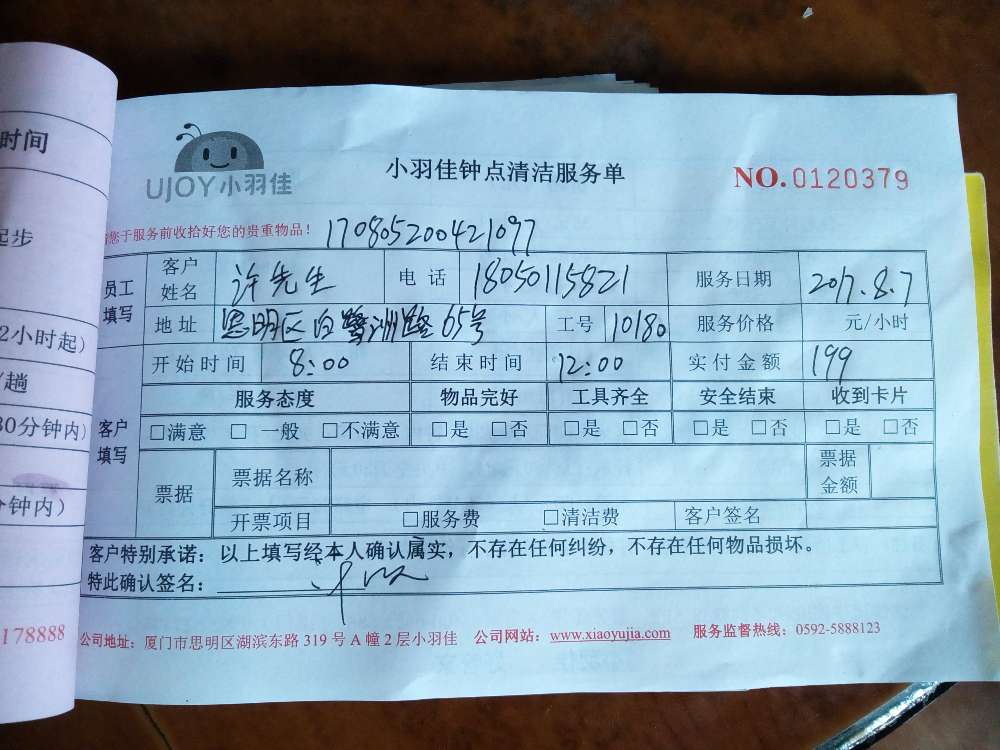 时间
起步
2小时起）
/趟
30分钟内）
分钟内）
178888
UJOY小羽佳
小羽佳钟点清洁服务单
NO.0120379
您于服务前收拾好您的贵重物品！ 170805200421097
员工填写
客户姓名 许先生 电话 18050115821 服务日期 2017.8.7
地址 思明区白鹭洲路65号 工号 10180 服务价格 元/小时
客户填写
开始时间 8:00 结束时间 12:00 实付金额 199
服务态度 物品完好 工具齐全 安全结束 收到卡片
□满意 □一般 □不满意 □是 □否 □是 □否 □是 □否 □是 □否
票据 票据名称 票据金额
开票项目 □服务费 □清洁费 客户签名
客户特别承诺：以上填写经本人确认属实，不存在任何纠纷，不存在任何物品损坏。
特此确认签名：
公司地址：厦门市思明区湖滨东路319号A幢2层小羽佳 公司网站：www.xiaoyujia.com 服务监督热线：0592-5888123